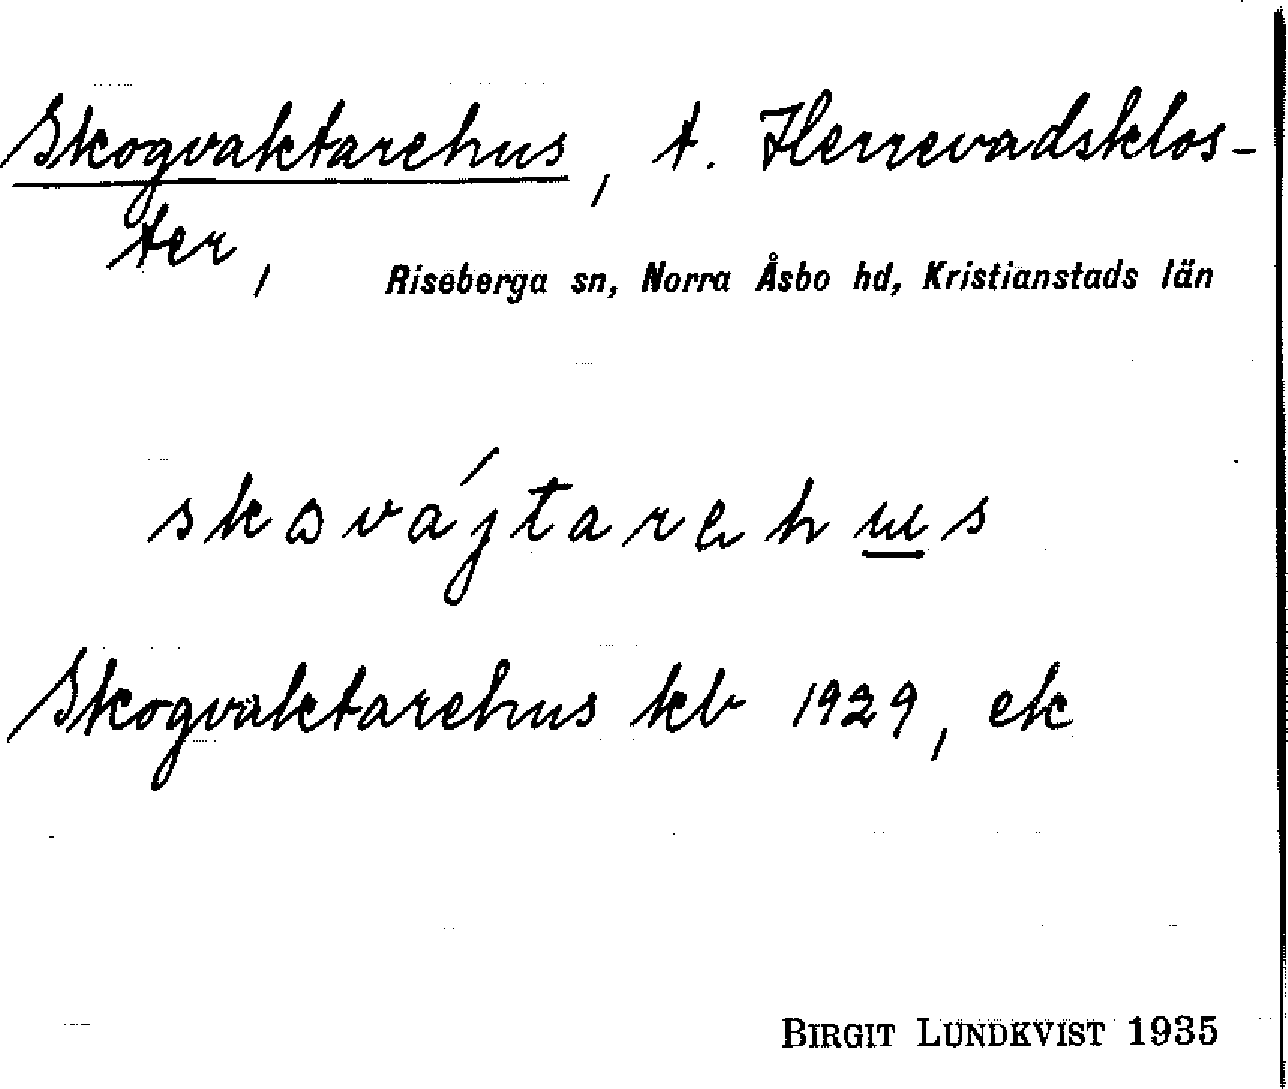 Skogvaktarehus, t. Herrevadsklos-
ter,
Riseberga sn, Norra Åsbo hd, Kristianstads län
Skogvaktarehus kb 1929, ek
BIRGIT LUNDKVIST 1935